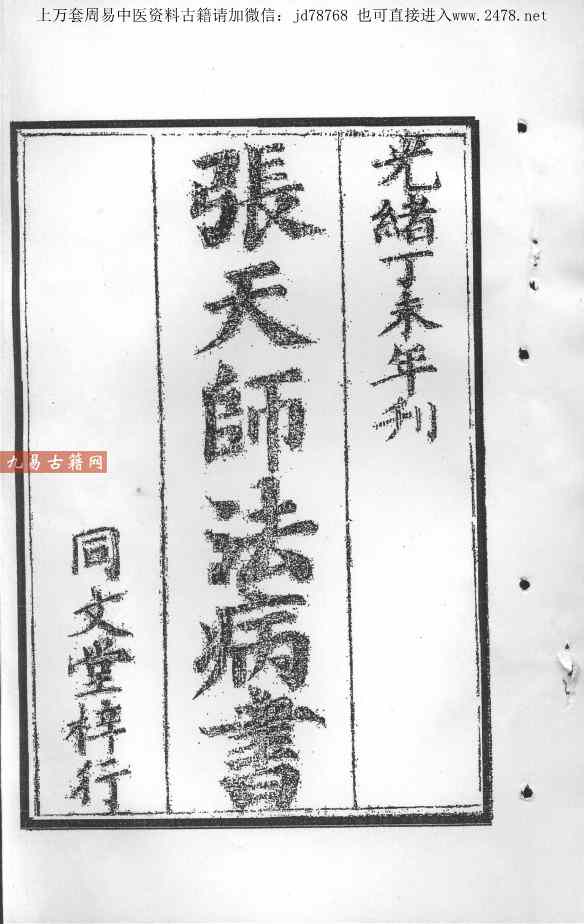 上万套周易中医资料古籍请加微信：jd78768 也可直接进入www.2478.net
光緒丁未年刋
張天師法病書
同文堂梓行
九易古籍网